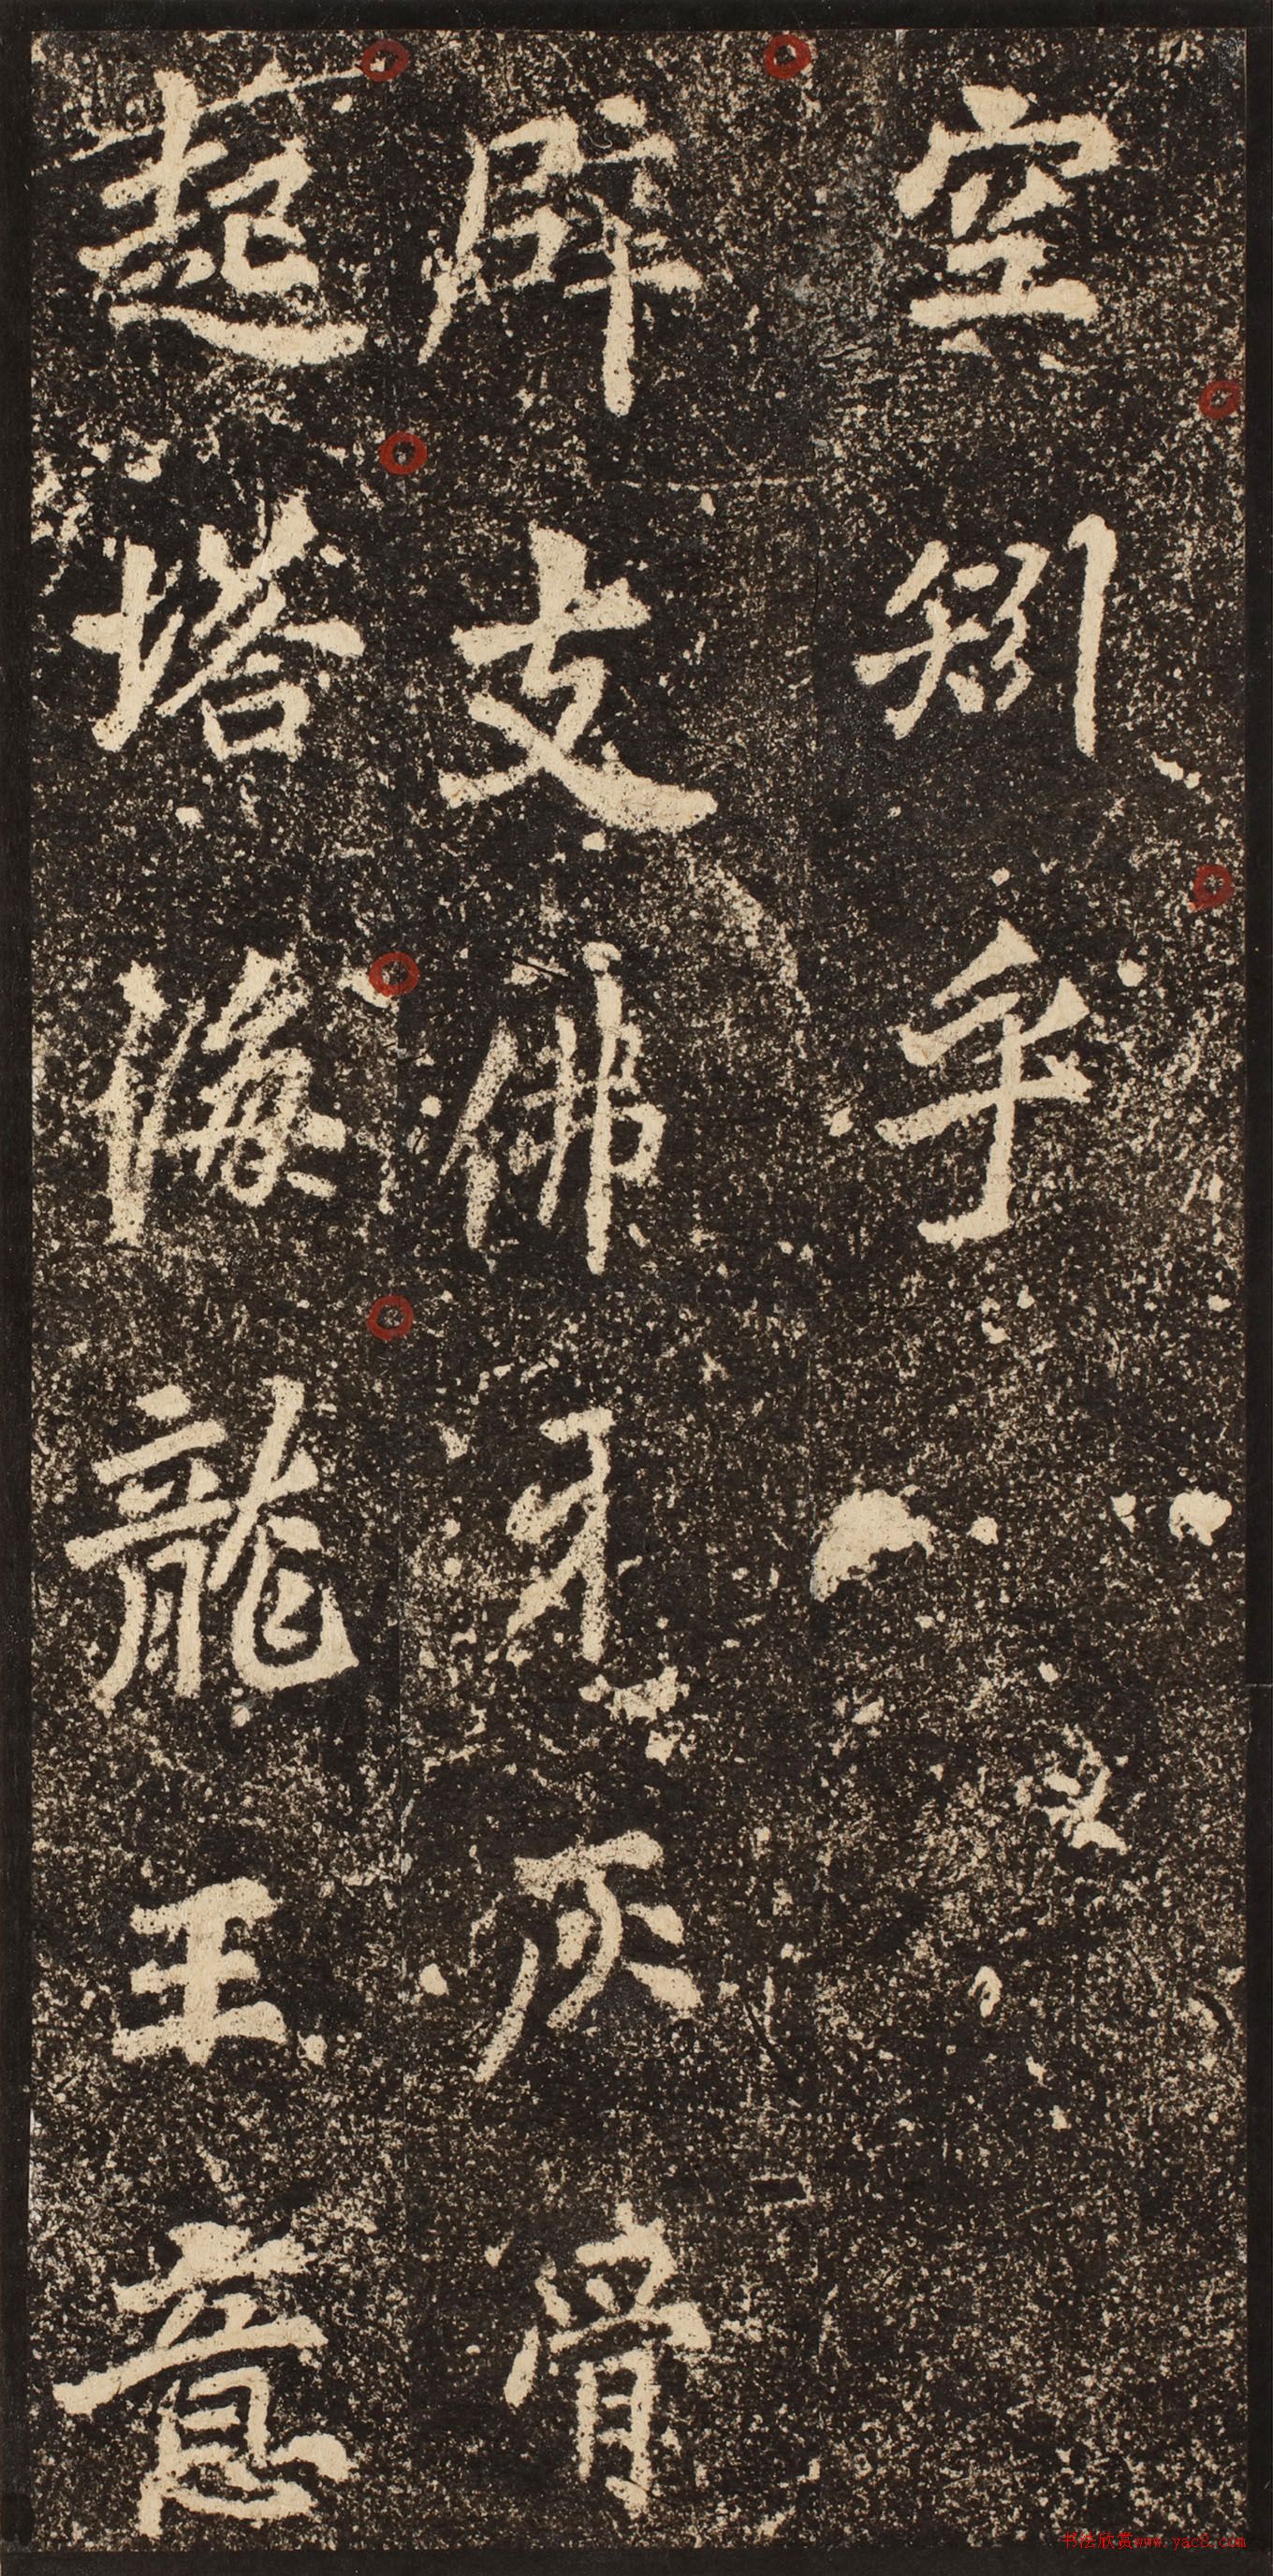 空矧乎
辟支佛牙灰骨
起塔龍王意
书法欣赏www.yac8.com